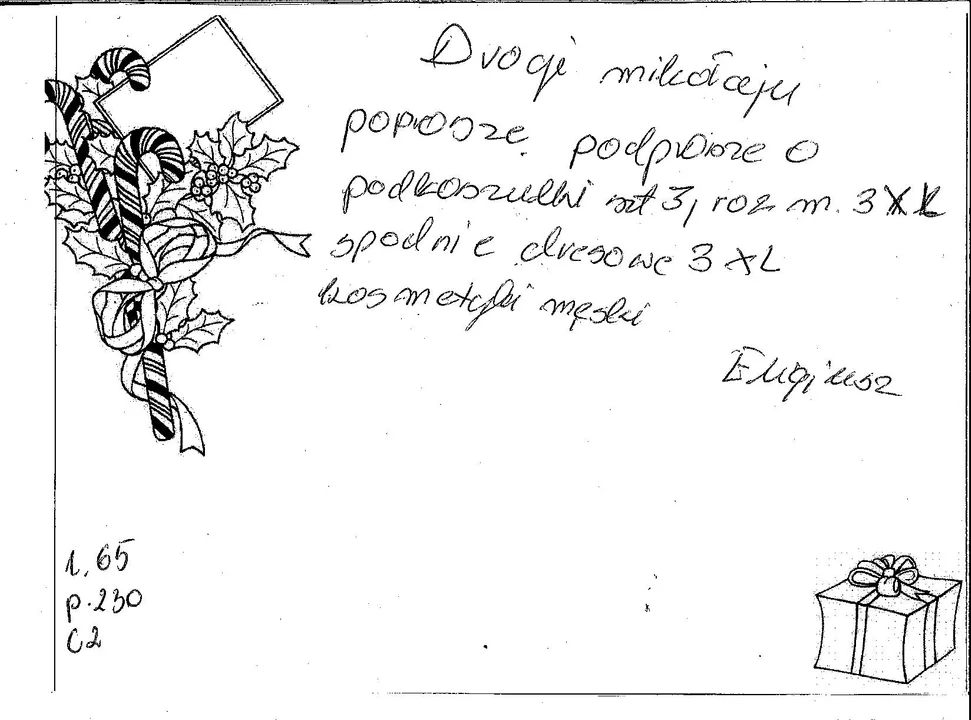 Drogi mikołaju
poprosze podprosze o
podkoszulki szt 3, roz m. 3XL
spodnie dresowe 3XL
kosmetyki męski
Eugiusz
1,65
p.230
C2